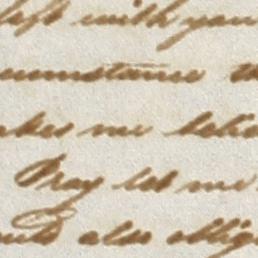 left with you
cumstance
kes me belie
Pray let me
also oblig